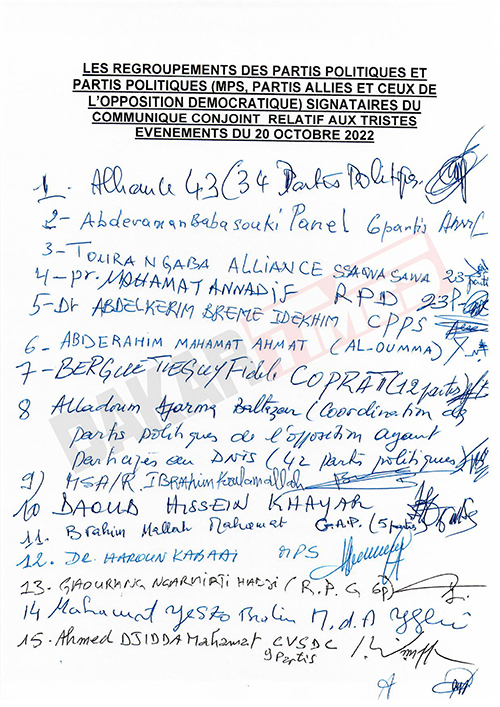 LES REGROUPEMENTS DES PARTIS POLITIQUES ET
PARTIS POLITIQUES (MPS, PARTIS ALLIES ET CEUX DE
L'OPPOSITION DEMOCRATIQUE) SIGNATAIRES DU
COMMUNIQUE CONJOINT RELATIF AUX TRISTES
EVENEMENTS DU 20 OCTOBRE 2022
1. Alliance 43 (34 Partis Politiques
2- Abderaman Babasouki Panel 6 partis
3- TOURANGABA ALLIANCE SSAWA SAWA 23 partis
4- pr. MAHAMAT ANNADIF RPD 23P.
5- Dr ABDELKERIM BREME IDEKHIM CPPS
6- ABDERAHIM MAHAMAT AHMAT (AL-OUMMA)
7- BERGUE TIEGUY Fidèle COPRAT (12 partis)
8 Alladoum Djarma Baltazar (Coordination de
partis politiques de l'opposition ayant
participés au DNIS (42 partis politiques)
9) MSA/R IBRAHIM Koulamallah
10 DAOUD HISSEIN KHAYAR
11. Brahim Mallah Mahamat G.A.P. (5 partis)
12. Dr. HAROUN KABADI MPS
13. GAOURANG NGARMIATI HADJI (R.P.G 6p)
14 Mahamat Yesko Brahim M.d.A
15. Ahmed DJIDDA Mahamat CVSDC
9 Partis
DAKARTIMES